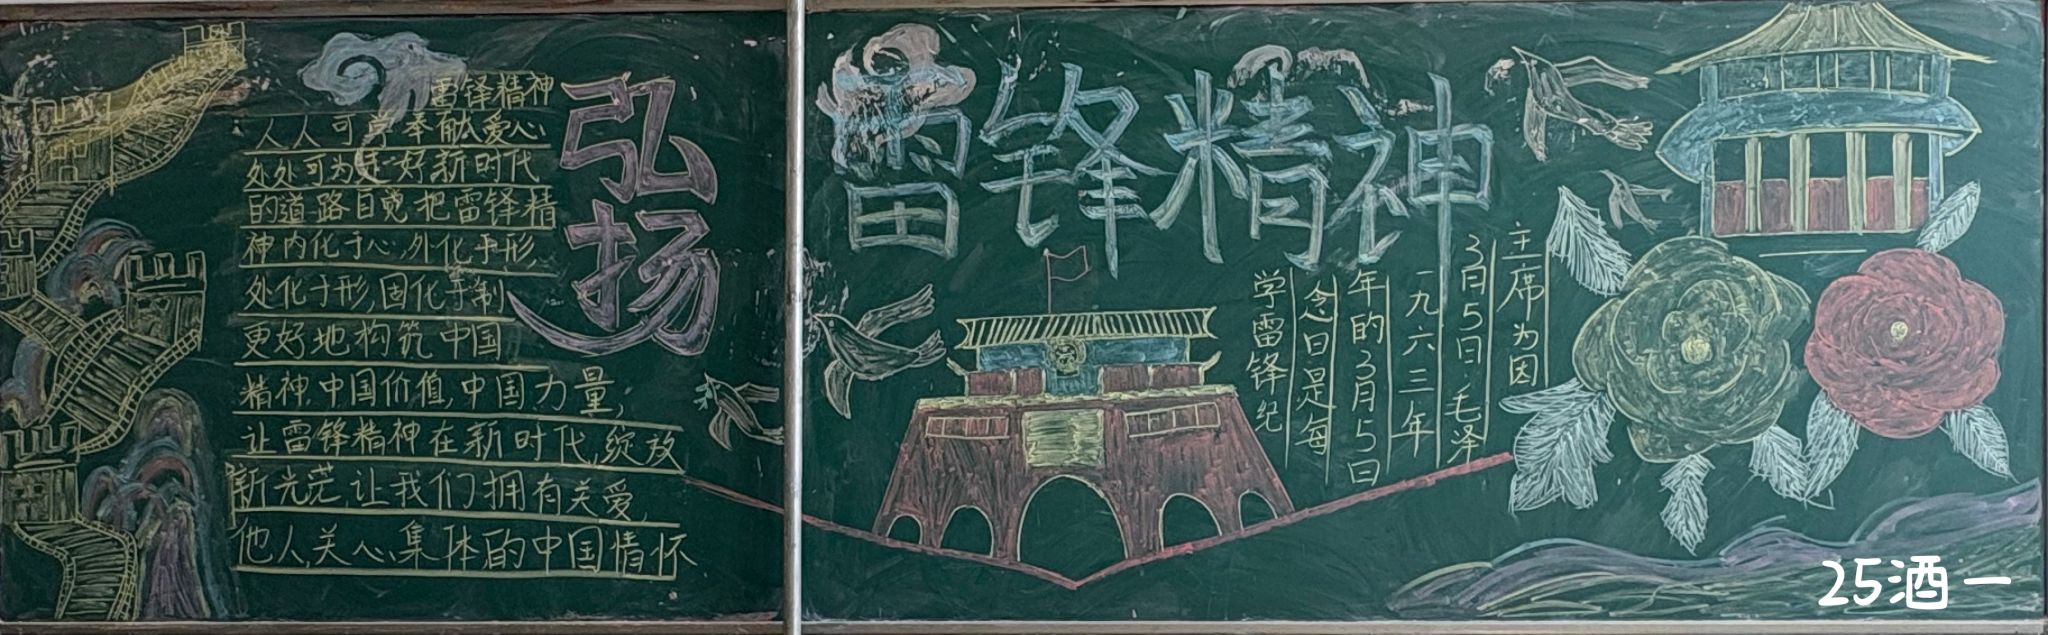 弘扬
雷锋精神
雷锋精神
人人可学奉献爱心
处处可为进一好新时代
的道路自觉把雷锋精
神内化于心,外化于形,
处化于形,固化于制
更好地构筑中国
精神,中国价值,中国力量,
让雷锋精神在新时代,绽放
新光芒,让我们拥有关爱
他人,关心集体的中国情怀
主席为因
3月5日毛泽
一九六三年
年的3月5日
念日是每
学雷锋纪
25酒一